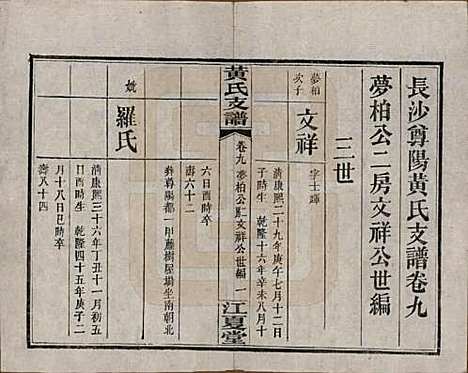 長沙尊陽黃氏支譜卷九
夢柏公二房文祥公世編
三世
夢柏次子
文祥
字士輝
清康熙二十九年庚午七月十二日
子時生 乾隆十六年辛未八月十
黃氏支譜
卷九 夢柏公二房文祥公世編 一
江夏堂
六日酉時卒
壽六十二
葬尊陽都一甲藤樹屋場坐南朝北
妣
羅氏
清康熙三十六年丁丑十一月初五
日酉時生 乾隆四十五年庚子二
月十八日巳時卒
壽八十四